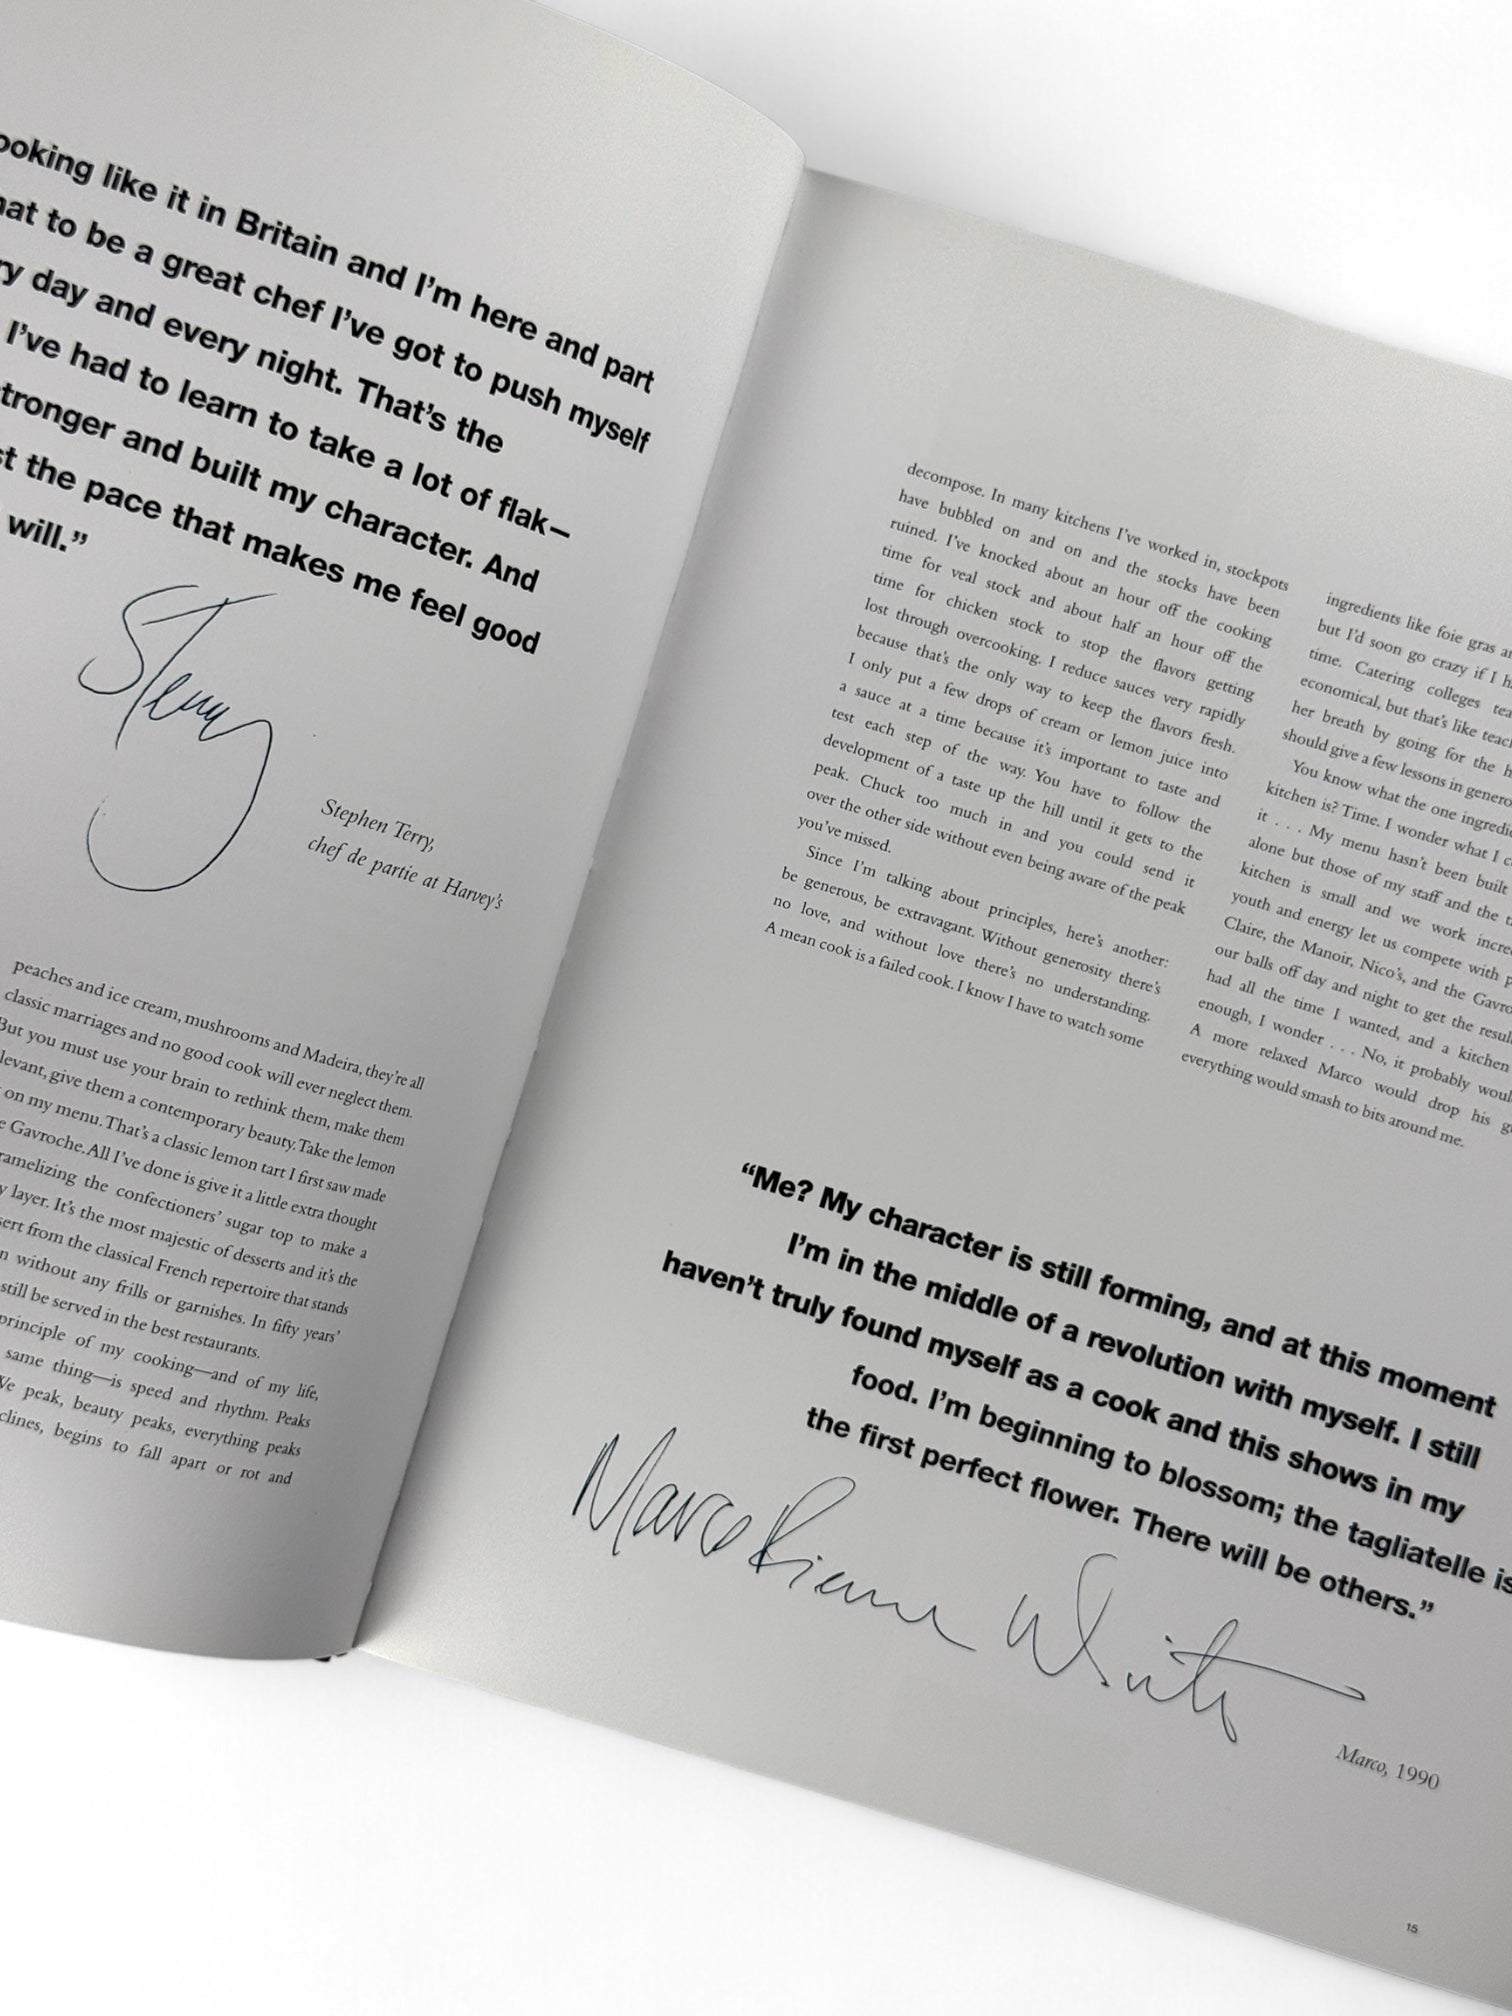 ooking like it in Britain and I'm here and part
hat to be a great chef I've got to push myself
ry day and every night. That's the
I've had to learn to take a lot of flak—
tronger and built my character. And
st the pace that makes me feel good
will."
STerry
Stephen Terry,
chef de partie at Harvey's
peaches and ice cream, mushrooms and Madeira, they're all
classic marriages and no good cook will ever neglect them.
But you must use your brain to rethink them, make them
levant, give them a contemporary beauty. Take the lemon
on my menu. That's a classic lemon tart I first saw made
e Gavroche. All I've done is give it a little extra thought
ramelizing the confectioners' sugar top to make a
y layer. It's the most majestic of desserts and it's the
sert from the classical French repertoire that stands
n without any frills or garnishes. In fifty years'
still be served in the best restaurants.
principle of my cooking—and of my life,
same thing—is speed and rhythm. Peaks
We peak, beauty peaks, everything peaks
clines, begins to fall apart or rot and
decompose. In many kitchens I've worked in, stockpots
have bubbled on and on and the stocks have been
ruined. I've knocked about an hour off the cooking
time for veal stock and about half an hour off the
time for chicken stock to stop the flavors getting
lost through overcooking. I reduce sauces very rapidly
because that's the only way to keep the flavors fresh.
I only put a few drops of cream or lemon juice into
a sauce at a time because it's important to taste and
test each step of the way. You have to follow the
development of a taste up the hill until it gets to the
peak. Chuck too much in and you could send it
over the other side without even being aware of the peak
you've missed.
Since I'm talking about principles, here's another:
be generous, be extravagant. Without generosity there's
no love, and without love there's no understanding.
A mean cook is a failed cook. I know I have to watch some
ingredients like foie gras an
but I'd soon go crazy if I h
time. Catering colleges tea
economical, but that's like teac
her breath by going for the h
should give a few lessons in genero
You know what the one ingredi
kitchen is? Time. I wonder what I c
it . . . My menu hasn't been built
alone but those of my staff and the t
kitchen is small and we work incre
youth and energy let us compete with p
Claire, the Manoir, Nico's, and the Gavro
our balls off day and night to get the resul
had all the time I wanted, and a kitchen
enough, I wonder . . . No, it probably woul
A more relaxed Marco would drop his g
everything would smash to bits around me.
"Me? My character is still forming, and at this moment
I'm in the middle of a revolution with myself. I still
haven't truly found myself as a cook and this shows in my
food. I'm beginning to blossom; the tagliatelle is
the first perfect flower. There will be others."
Marco Pierre White
Marco, 1990
15